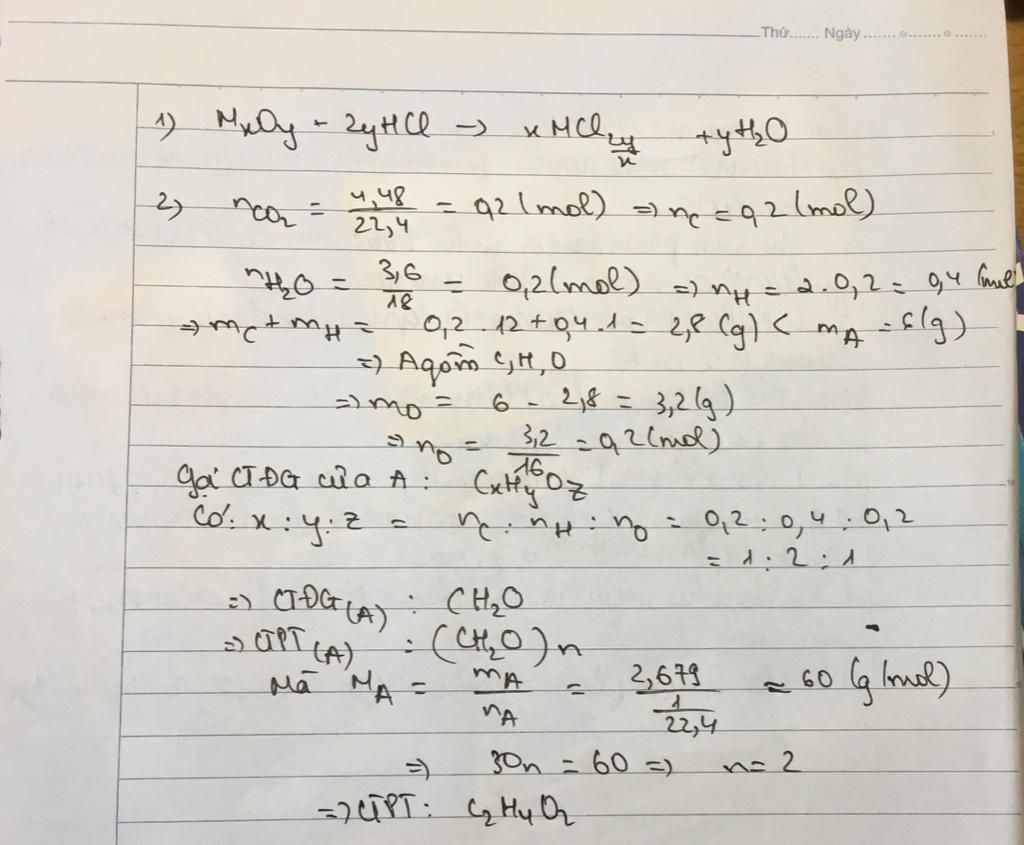 Thứ....... Ngày.............................
1) MxOy + 2yHCl → xMCl2y/x + yH2O
2) nCO2 = 4,48/22,4 = 0,2 (mol) ⇒ nC = 0,2 (mol)
nH2O = 3,6/18 = 0,2 (mol) ⇒ nH = 2.0,2 = 0,4 (mol
⇒ mC + mH = 0,2.12 + 0,4.1 = 2,8 (g) < mA = 6(g)
⇒ A gồm C, H, O
⇒ mO = 6 - 2,8 = 3,2 (g)
⇒ nO = 3,2/16 = 0,2 (mol)
Gọi CTĐG của A : CxHyOz
Có: x : y : z = nC : nH : nO = 0,2 : 0,4 : 0,2
= 1 : 2 : 1
⇒ CTĐG(A) : CH2O
⇒ CTPT(A) : (CH2O)n
Mà MA = mA/nA = 2,679/(1/22,4) ≈ 60 (g/mol)
⇒ 30n = 60 ⇒ n = 2
⇒ CTPT : C2H4O2